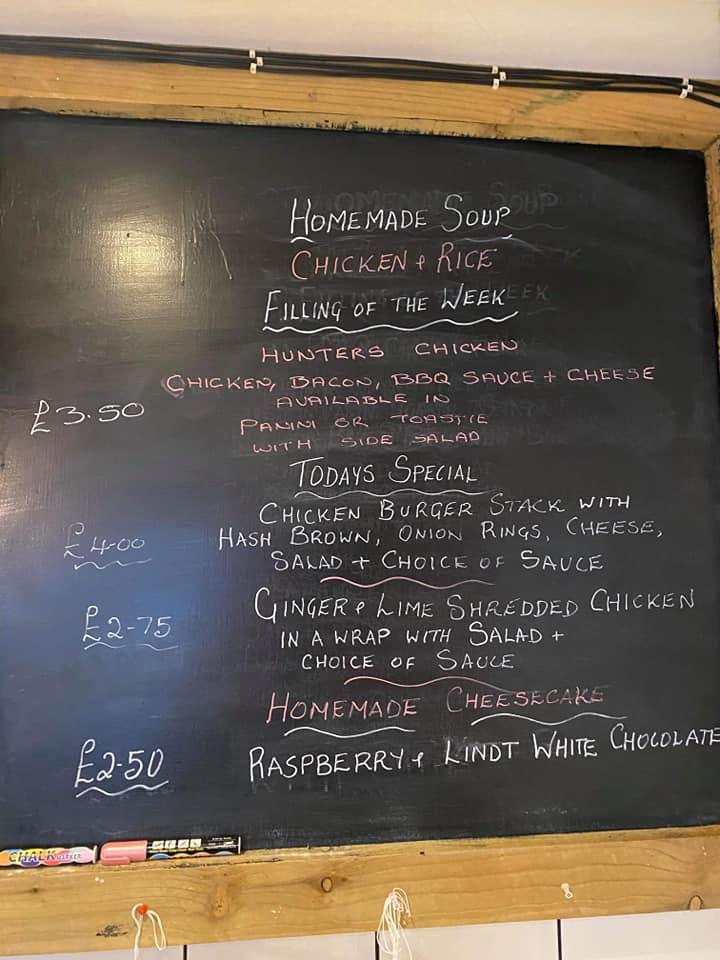 HOMEMADE SOUP
CHICKEN & RICE
FILLING OF THE WEEK
HUNTERS CHICKEN
CHICKEN, BACON, BBQ SAUCE + CHEESE
AVAILABLE IN
£3.50
PANINI OR TOASTIE
WITH SIDE SALAD
TODAYS SPECIAL
CHICKEN BURGER STACK WITH
£4-00 HASH BROWN, ONION RINGS, CHEESE,
SALAD + CHOICE OF SAUCE
GINGER & LIME SHREDDED CHICKEN
£2-75 IN A WRAP WITH SALAD +
CHOICE OF SAUCE
HOMEMADE CHEESECAKE
£2-50 RASPBERRY & LINDT WHITE CHOCOLATE
CHALK